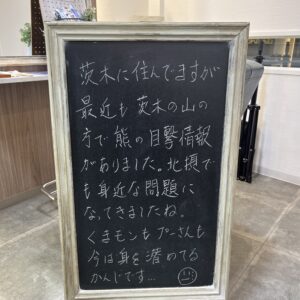 茨木に住んでますが
最近も茨木の山の
方で熊の目撃情報
がありました。北摂で
も身近な問題に
なってきましたね。
くまモンもプーさんも
今は身を潜めてる
かんじです…